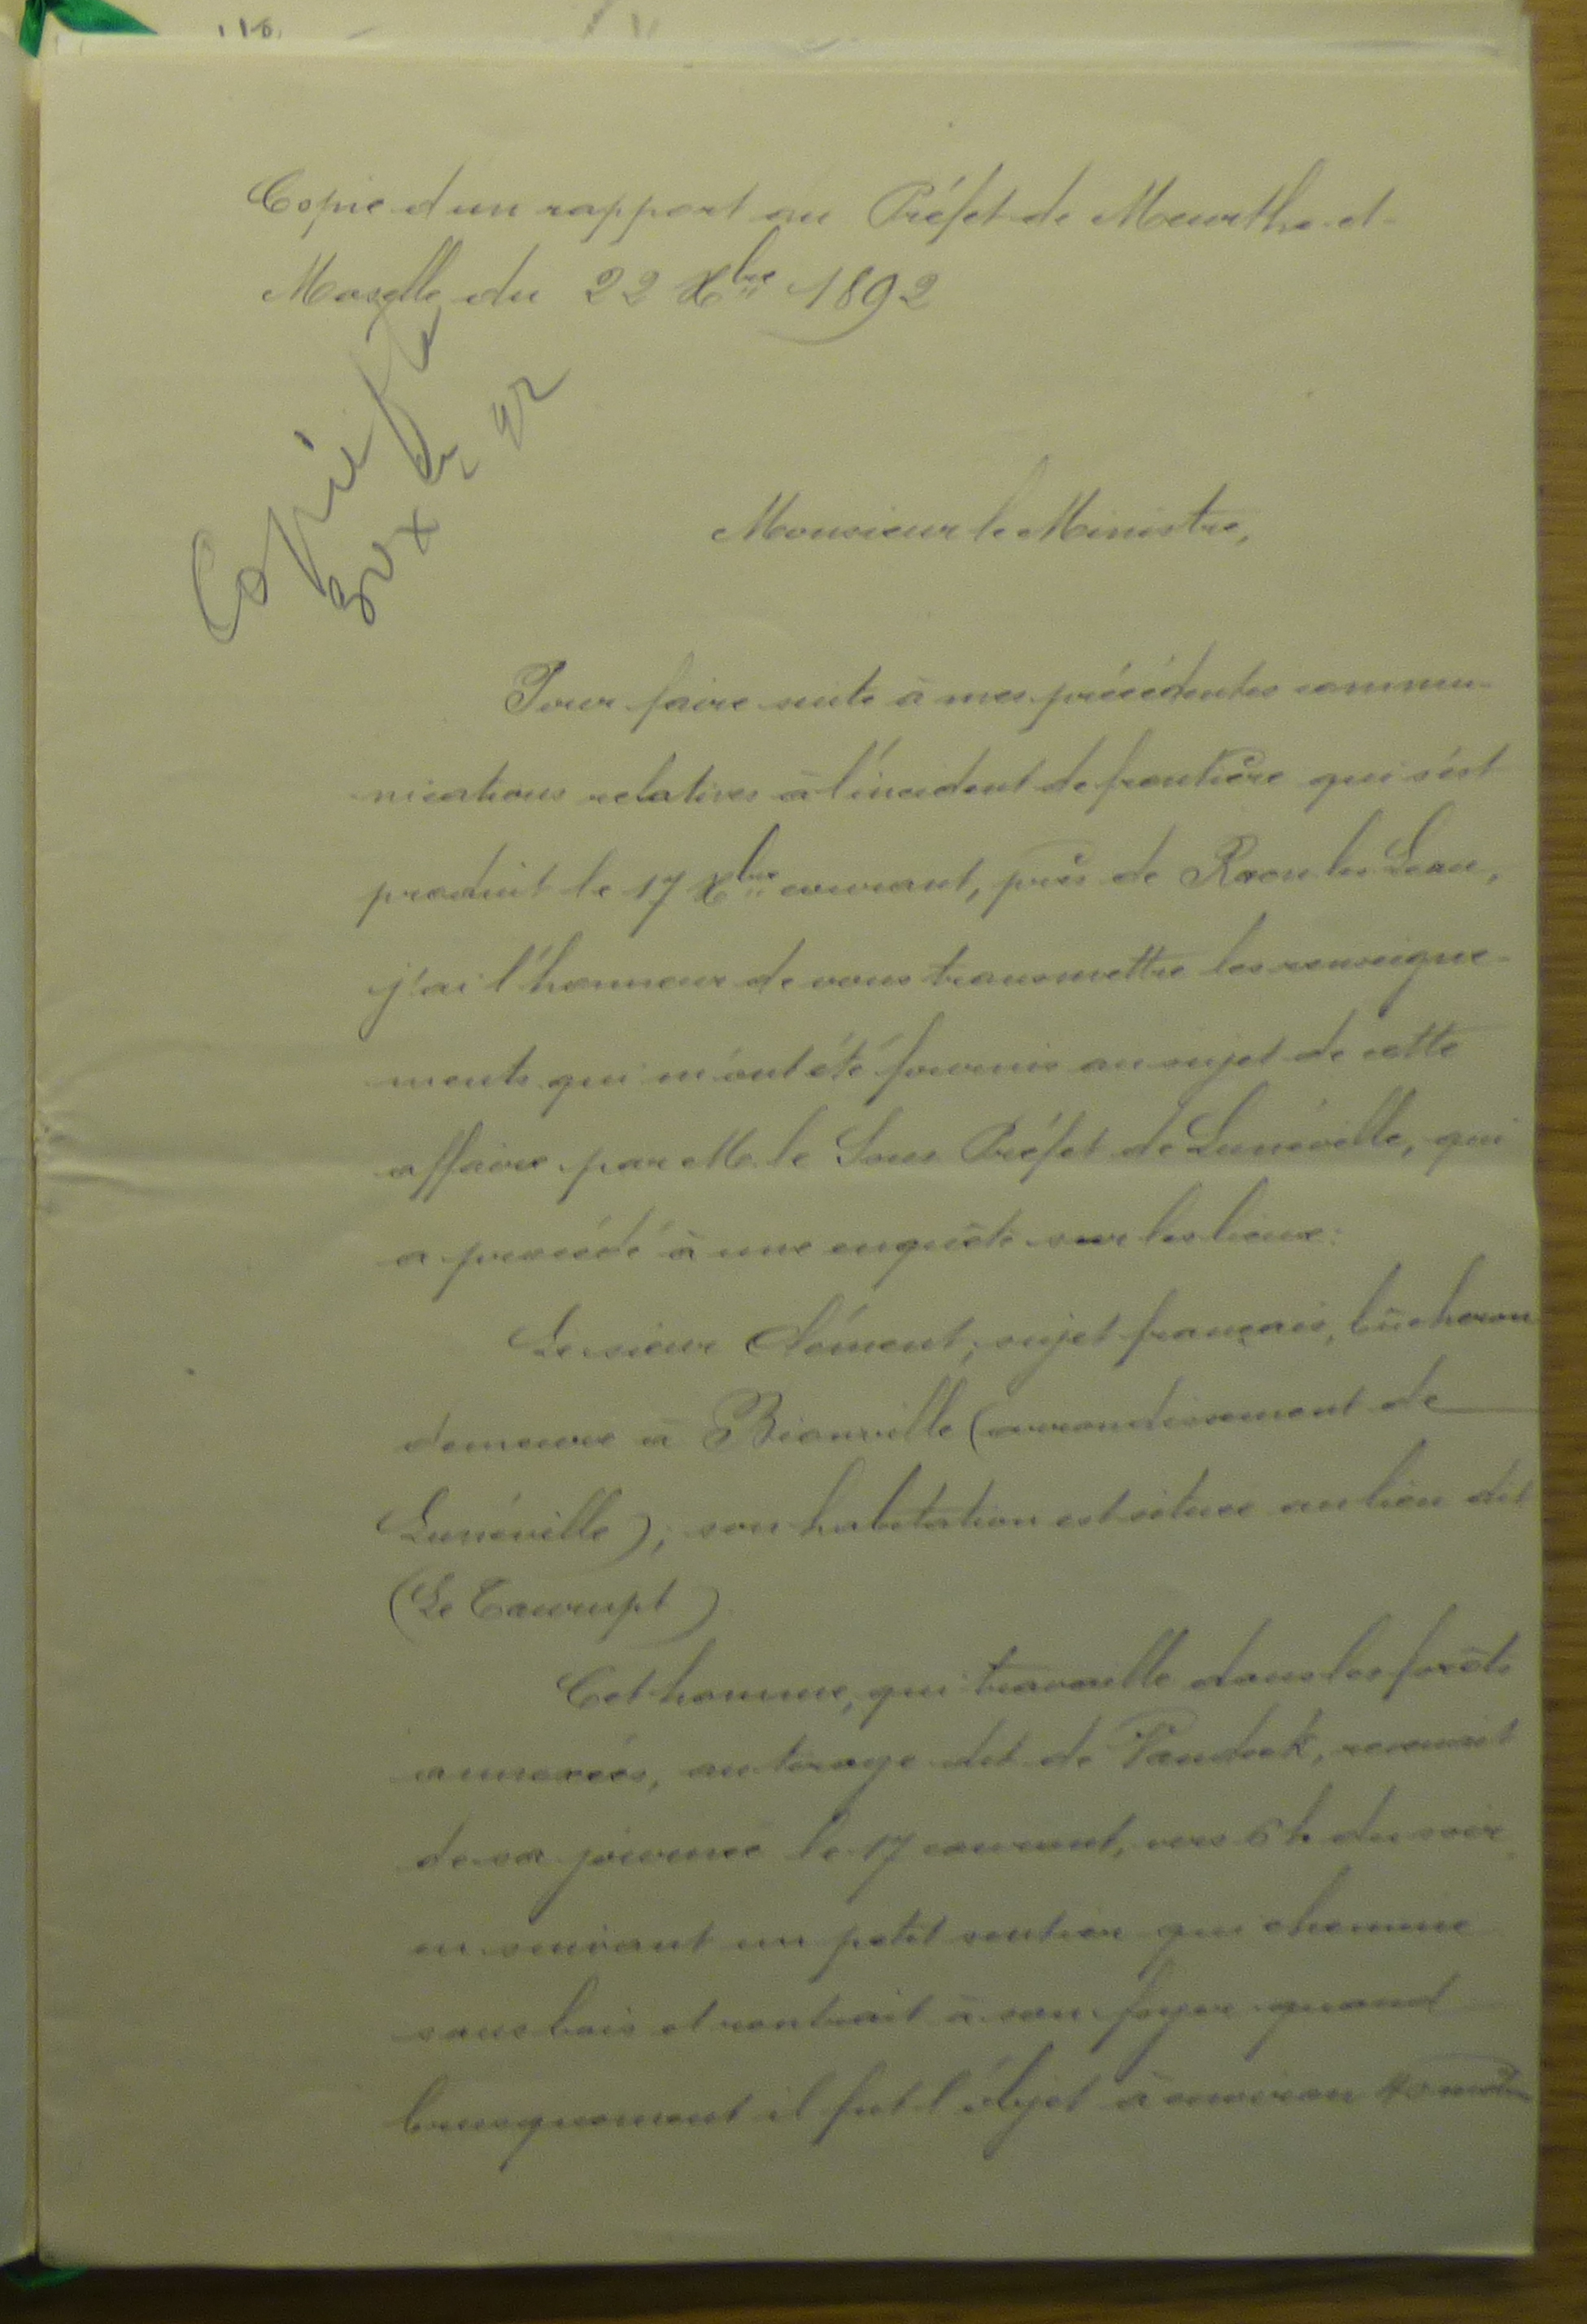 Copie d'un rapport au Préfet de Meurthe-et-
Moselle du 22 Xbre 1892
Copie
30 Xbre 92
Monsieur le Ministre,
Pour faire suite à mes précédentes commu-
nications relatives à l'incident de frontière qui s'est
produit le 17 Xbre courant, près de Raon les Leau,
j'ai l'honneur de vous transmettre les renseigne-
ments qui m'ont été fournis au sujet de cette
affaire par M. le Sous Préfet de Lunéville, qui
a procédé à une enquête sur les lieux:
Le sieur Clément, sujet français, bûcheron
demeure à Bionville (arrondissement de
Lunéville); son habitation est située au lieu dit
(Le Tourupt)
Cet homme, qui travaille dans les forêts
annexées, au tirage dit de, revenait
de sa journée le 17 courant, vers 6 h du soir
en suivant un petit sentier qui chemine
sous bois et rentrait à son foyer quand
brusquement il fut l'objet à environ 40 mètres